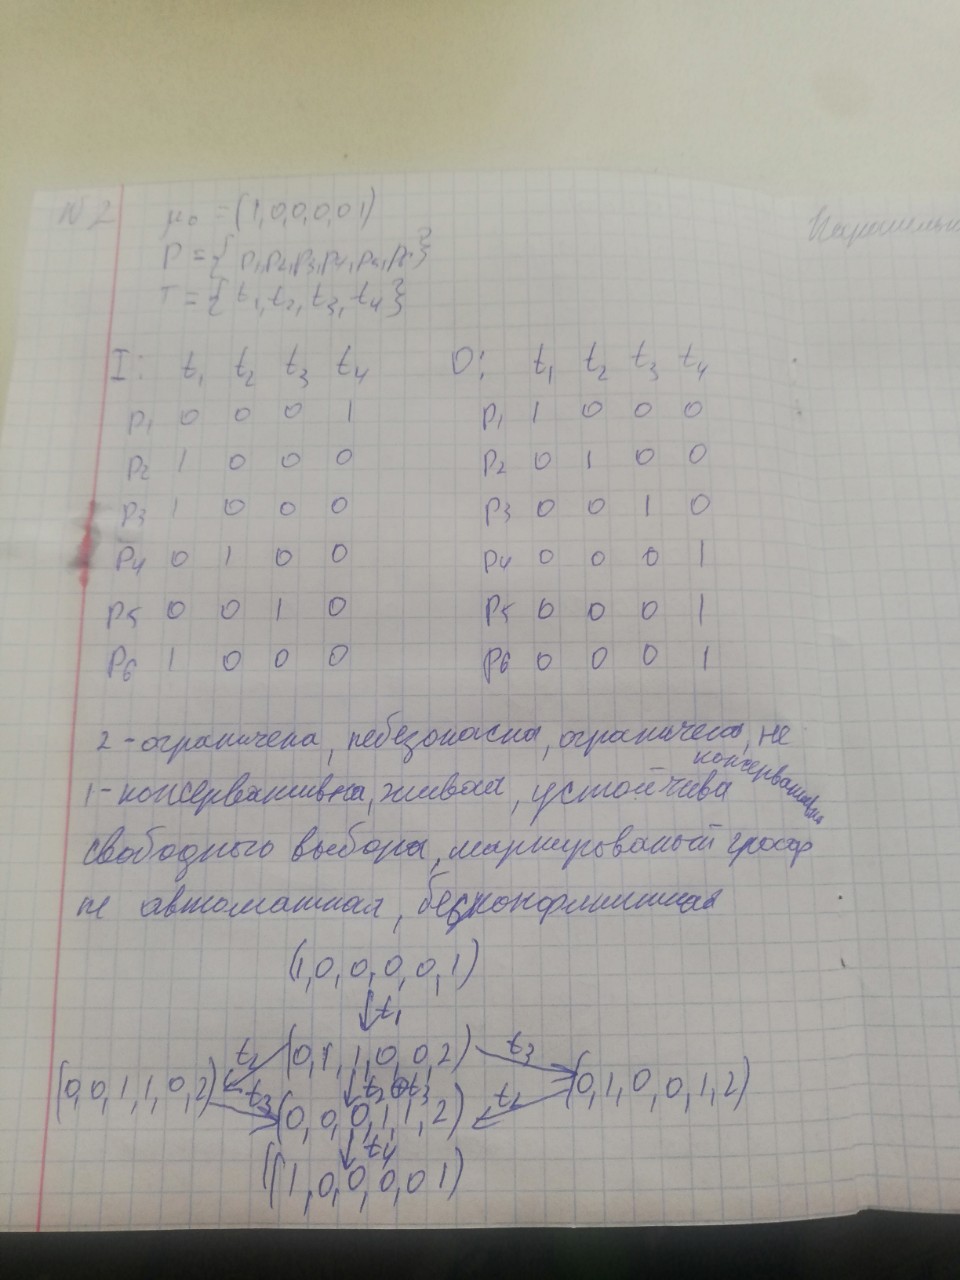 №2 μ₀ = (1,0,0,0,0 1)
P = { p₁,p₂,p₃,p₄,p₅,p₆}
T = { t₁, t₂, t₃, t₄ }
I: t₁ t₂ t₃ t₄ O: t₁ t₂ t₃ t₄
p₁ 0 0 0 1 p₁ 1 0 0 0
p₂ 1 0 0 0 p₂ 0 1 0 0
p₃ 1 0 0 0 p₃ 0 0 1 0
p₄ 0 1 0 0 p₄ 0 0 0 1
p₅ 0 0 1 0 p₅ 0 0 0 1
p₆ 1 0 0 0 p₆ 0 0 0 1
2-ограничена, небезопасна, ограничена, не консервативна
1-консервативна, живая, устойчива
свободного выбора, маркированый граф
не автоматная, бесконфликтная
(1,0,0,0,0,1)
t₁
(0,1,1,0,0,2)
t₂ t₃
(0,0,1,1,0,2) t₃ t₂⊕t₃ t₂ (0,1,0,0,1,2)
(0,0,0,1,1,2)
t₄
(1,0,0,0,0 1)